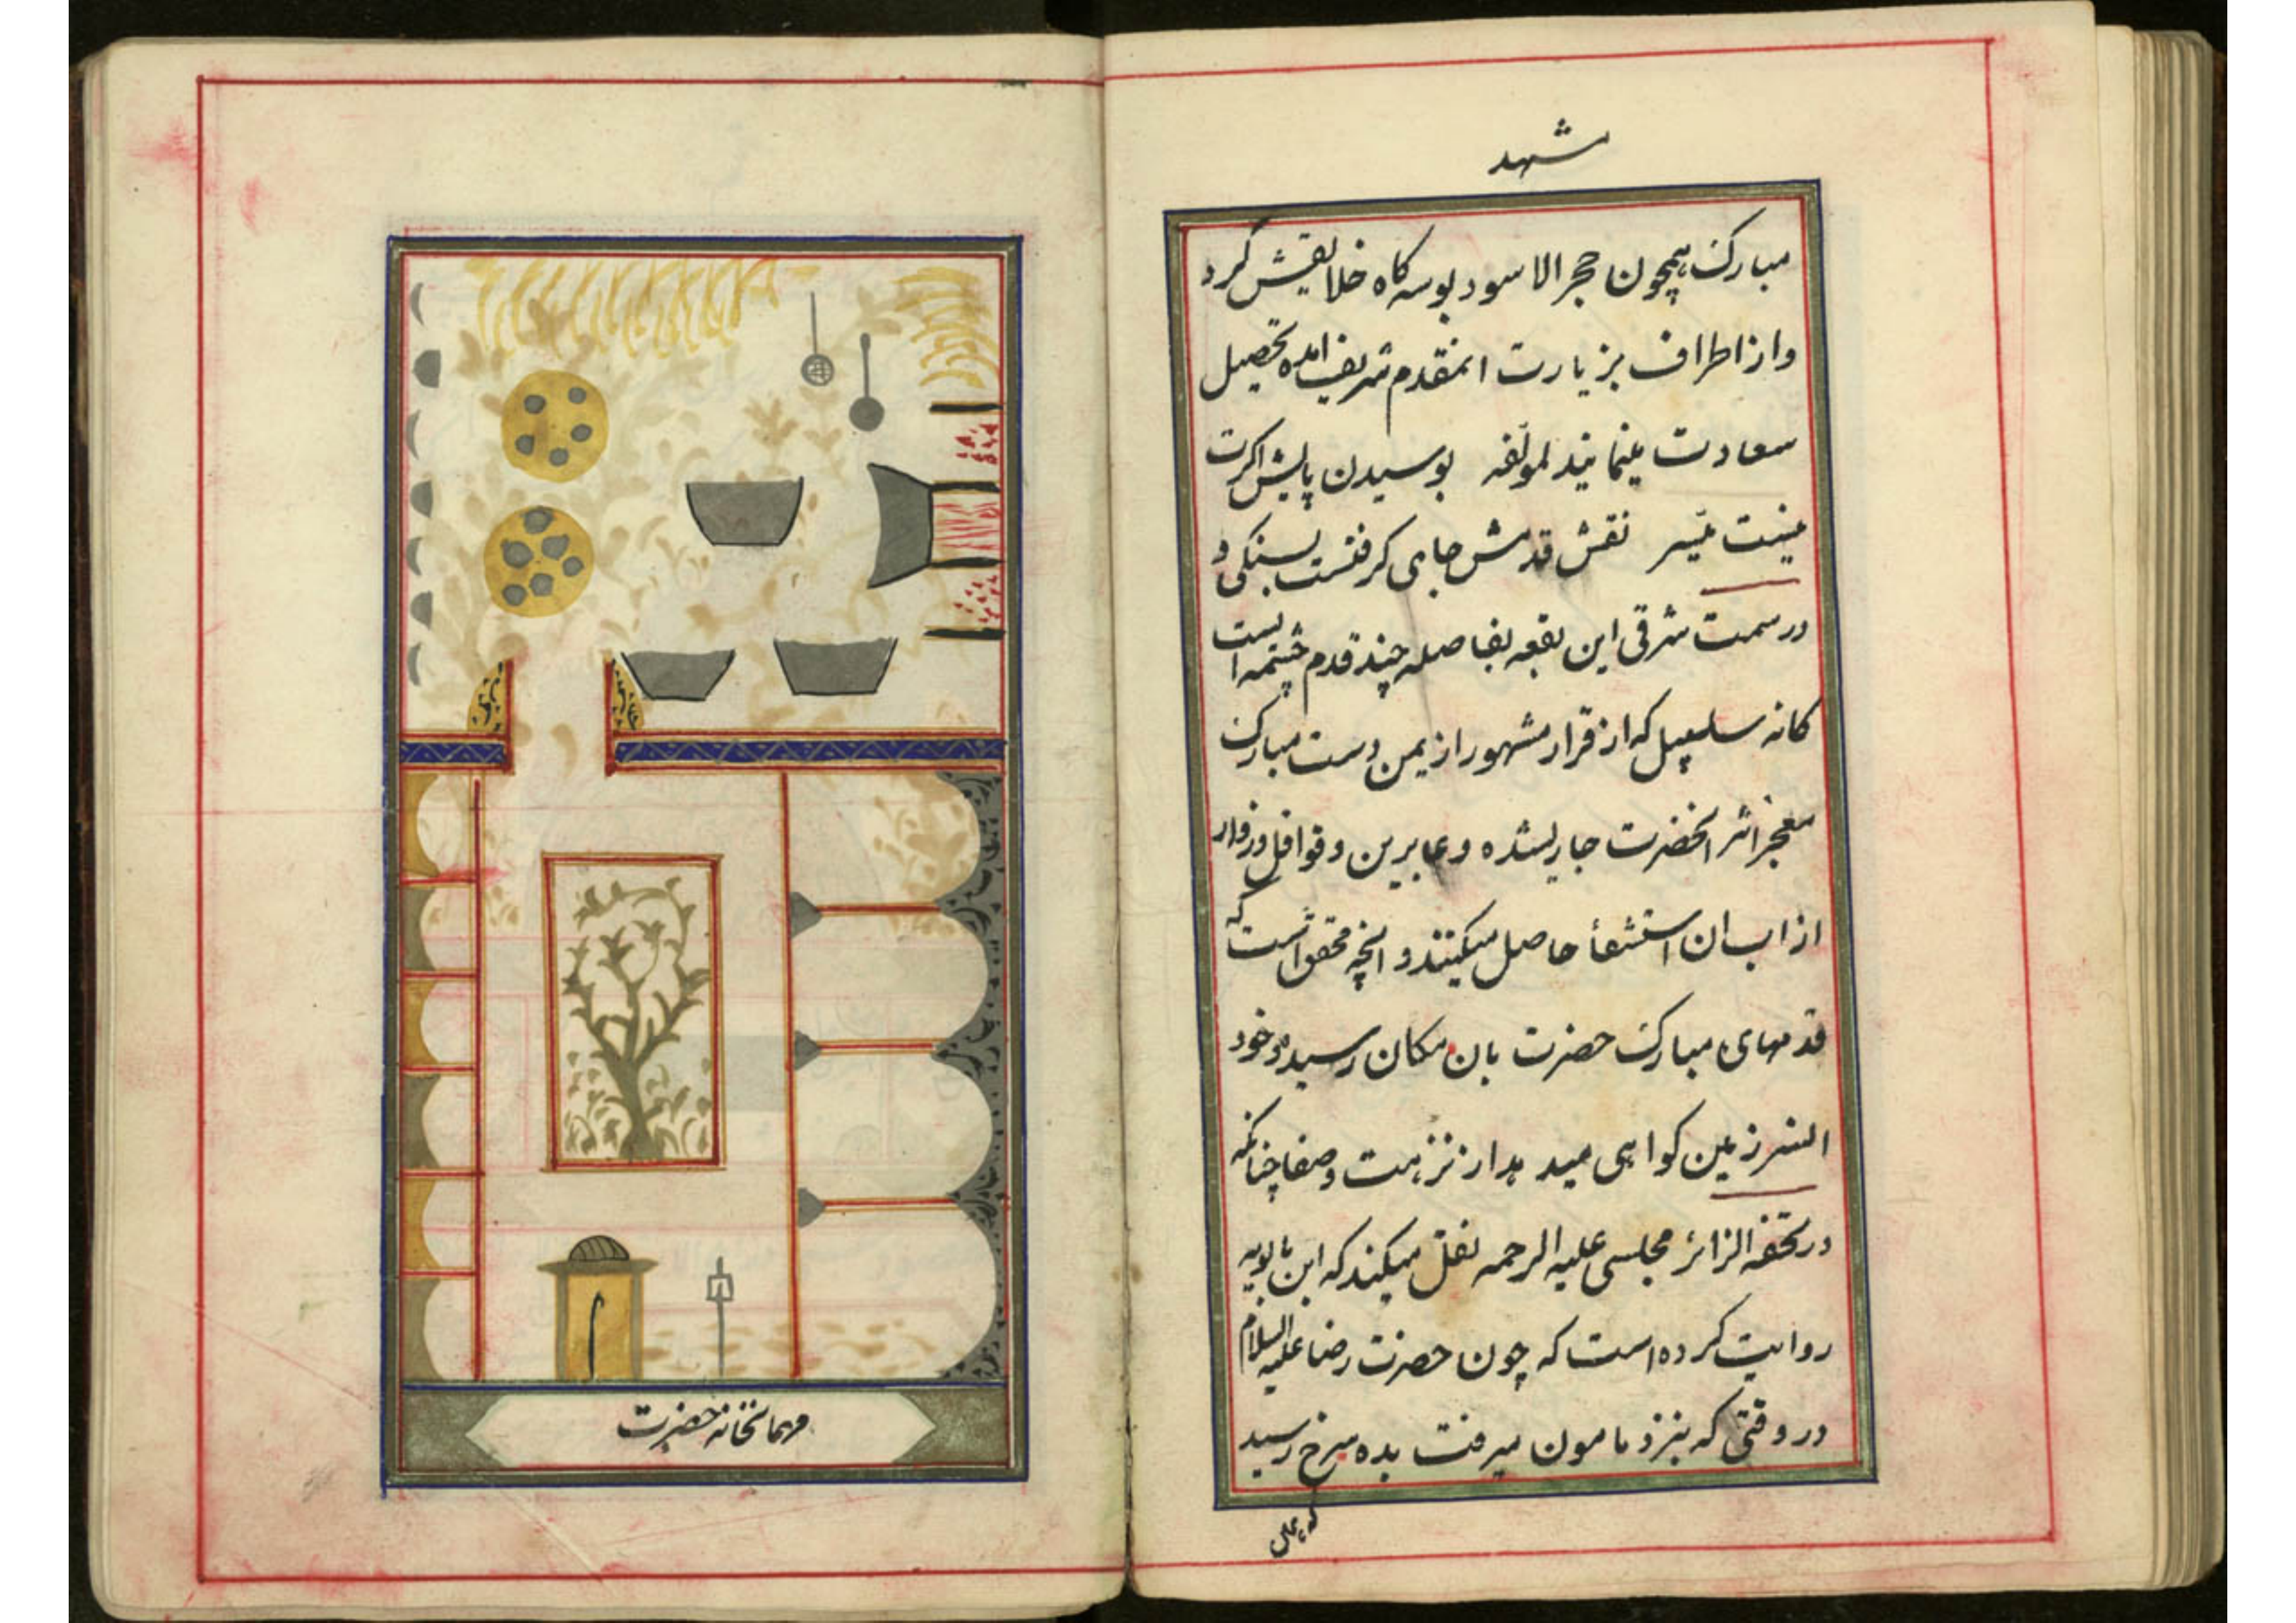 مشهد
مبارک همچون حجر الاسود بوسه کاه خلایقش کرد
و از اطراف بزیارت انمقدم شریف امده تحصیل
سعادت مینمایند لمولفه بوسیدن پایش اکرت
نیست میسر نقش قدمش جای کرفتست بسنکی و
در سمت شرقی این بقعه بفاصله چند قدم چشمه ایست
کانه سلسبیل که از قرار مشهور از یمن دست مبارک
معجز اثر انحضرت جاریشده و عابرین و قوافل و زوار
از اب ان استشفأ حاصل میکنند و انچه محقق است که
قدمهای مبارک حضرت بان مکان رسیده و خود
انسرزمین کواهی میدهد از نزهت و صفا چنانکه
در تحفه الزائر مجلسی علیه الرحمه نقل میکند که ابن بابویه
روایت کرده است که چون حضرت رضا علیه السلام
در وقتی که بنزد مامون میرفت بده سرخ رسید
مهمانخانه حضرت